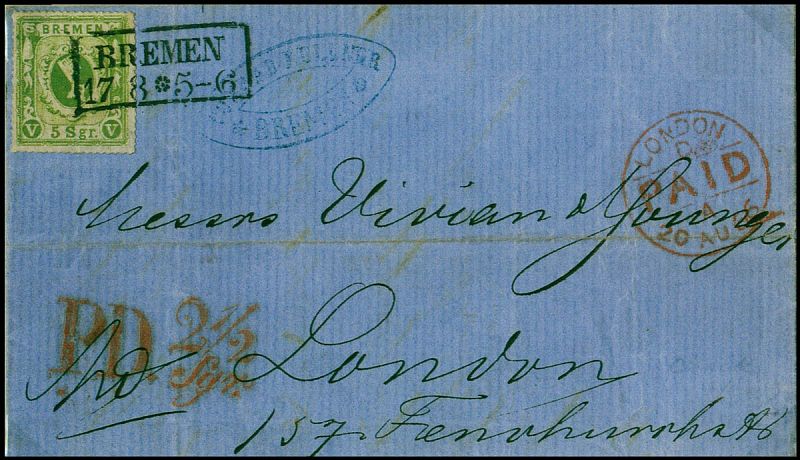 BREMEN
V 5 Sgr. V
BREMEN
17 8 5-6
BREMEN
LONDON
PAID
20 AU
Messrs Vivian & Younger
P.D. 2 1/2
Sgr.
London
157. Fenchurch